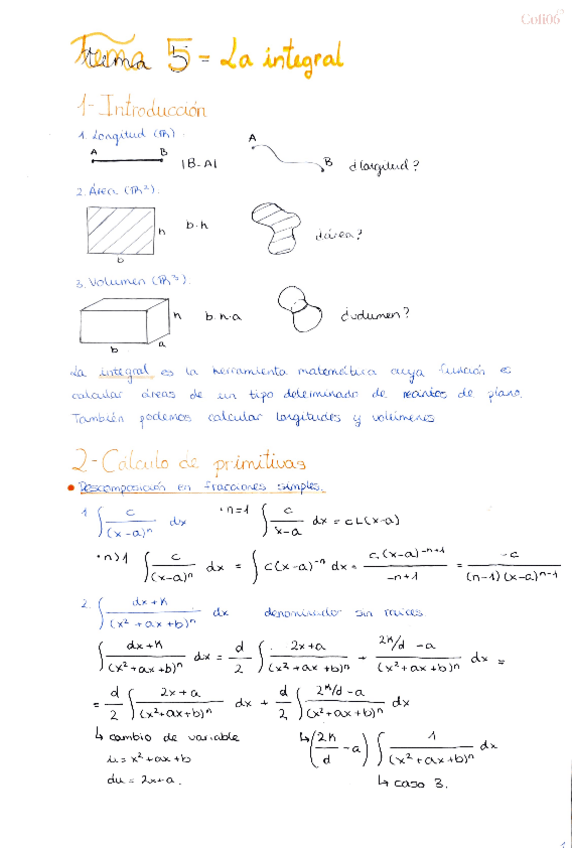 Coli06
Tema 5 = La integral
1- Introducción
1. Longitud (ℝ).
A B |B-A| A B ¿longitud?
2. Área (ℝ²).
h b b·h ¿área?
3. Volumen (ℝ³).
h b a b·h·a ¿volumen?
La integral es la herramienta matemática cuya función es
calcular áreas de un tipo determinado de recintos de plano.
También podemos calcular longitudes y volúmenes
2- Cálculo de primitivas
• Descomposición en fracciones simples.
1. ∫ c/(x-a)ⁿ dx · n=1 ∫ c/(x-a) dx = cL(x-a)
· n>1 ∫ c/(x-a)ⁿ dx = ∫ c(x-a)⁻ⁿ dx = c.(x-a)⁻ⁿ⁺¹/(-n+1) = -c/((n-1)(x-a)ⁿ⁻¹)
2. ∫ (dx+K)/(x²+ax+b)ⁿ dx denominador sin raíces
∫ (dx+K)/(x²+ax+b)ⁿ dx = d/2 ∫ (2x+a)/(x²+ax+b)ⁿ + (2K/d -a)/(x²+ax+b)ⁿ dx =
= d/2 ∫ (2x+a)/(x²+ax+b)ⁿ dx + d/2 ∫ (2K/d-a)/(x²+ax+b)ⁿ dx
↳ cambio de variable ↳ (2K/d -a) ∫ 1/(x²+ax+b)ⁿ dx
u= x²+ax+b
du = 2x+a. ↳ caso 3.
1